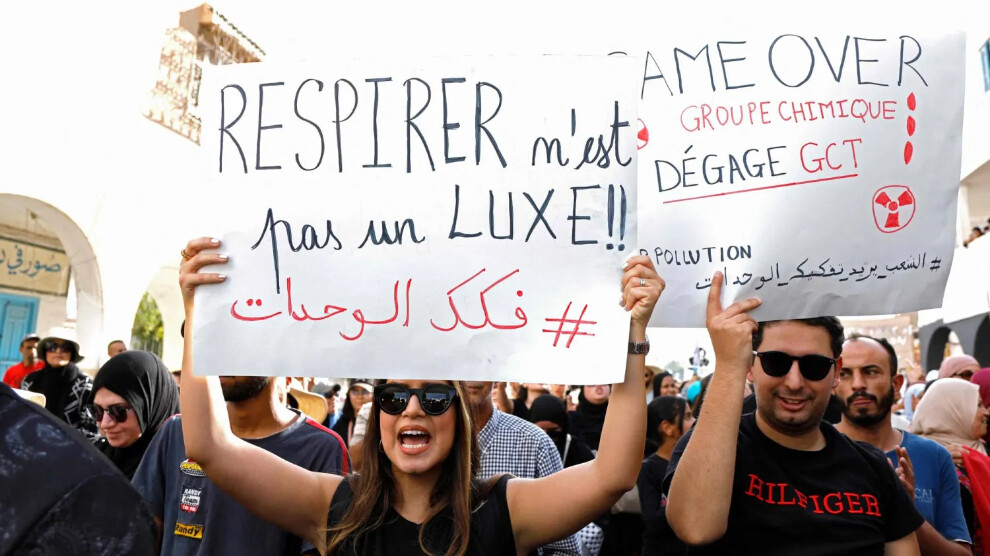 RESPIRER n'est
pas un LUXE!!
#فكك الوحدات
AME OVER
GROUPE CHIMIQUE !!!
DÉGAGE GCT
POLLUTION
#الشعب_يريد_تفكيك_الوحدات
HILFIGER
Randy